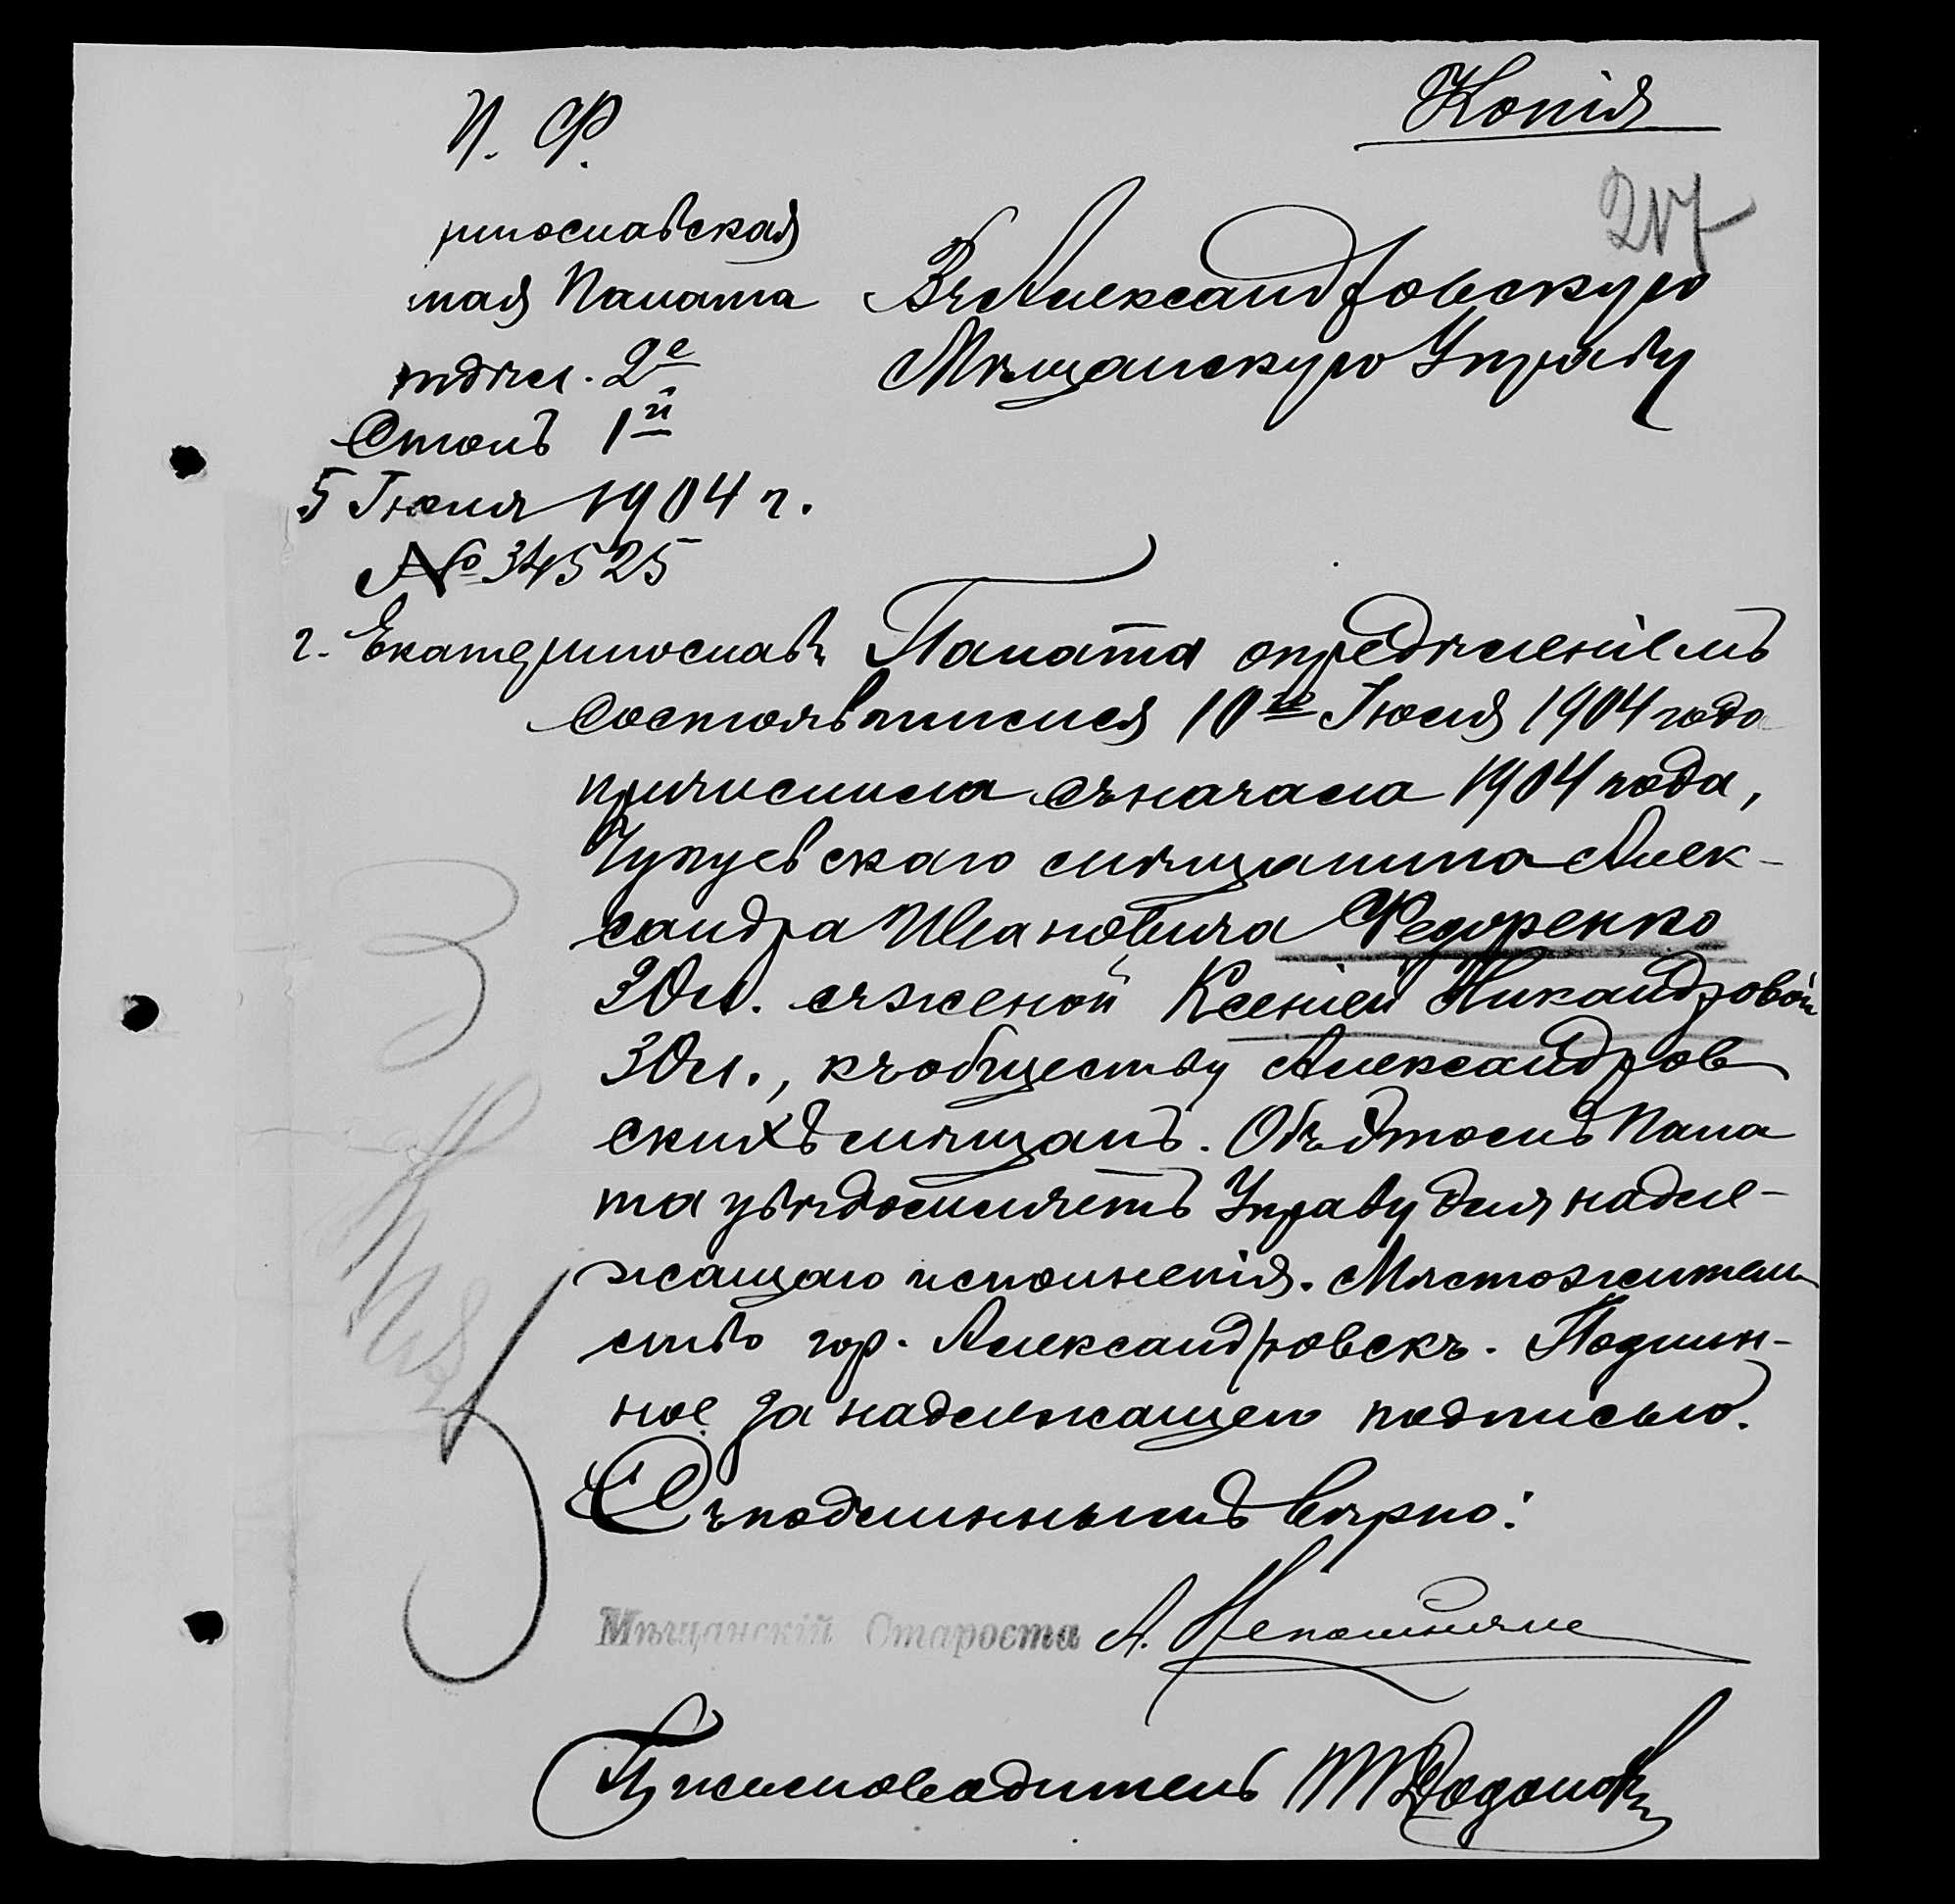 Копія
И. Ф.
217
ринославская
ная Палата
тдѣл. 2е
Столъ 1й
5 Іюля 1904 г.
№ 34525
г. Екатеринославъ
Въ Александровскую
Мѣщанскую Управу
Палата опредѣленіемъ
состоявшимся 10го Іюля 1904 года
причислила съ начала 1904 года,
Чугуевскаго мѣщанина Алек-
сандра Ивановича Федоренко
30 л. съ женой Ксеніей Никандровой
30 л., къ обществу Александров
скихъ мѣщанъ. Объ этомъ Пала
та увѣдомляетъ Управу для надле-
жащаго исполненія. Мѣстожитель
ство гор. Александровскъ. Подлин-
ное за надлежащею подписью.
Съ подлиннымъ вѣрно:
Мѣщанскій Староста А.
Письмоводитель